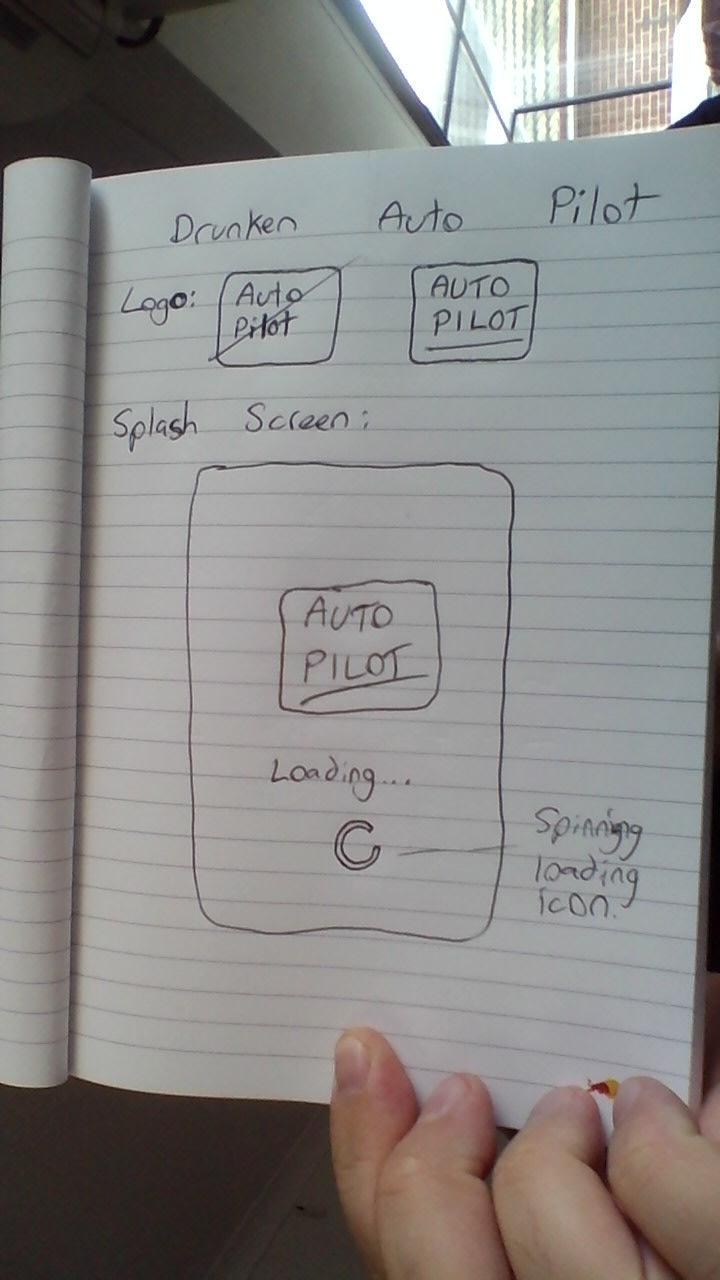 Drunken Auto Pilot
Logo: Auto Pilot AUTO PILOT
Splash Screen:
AUTO
PILOT
Loading...
Spinning
loading
icon.